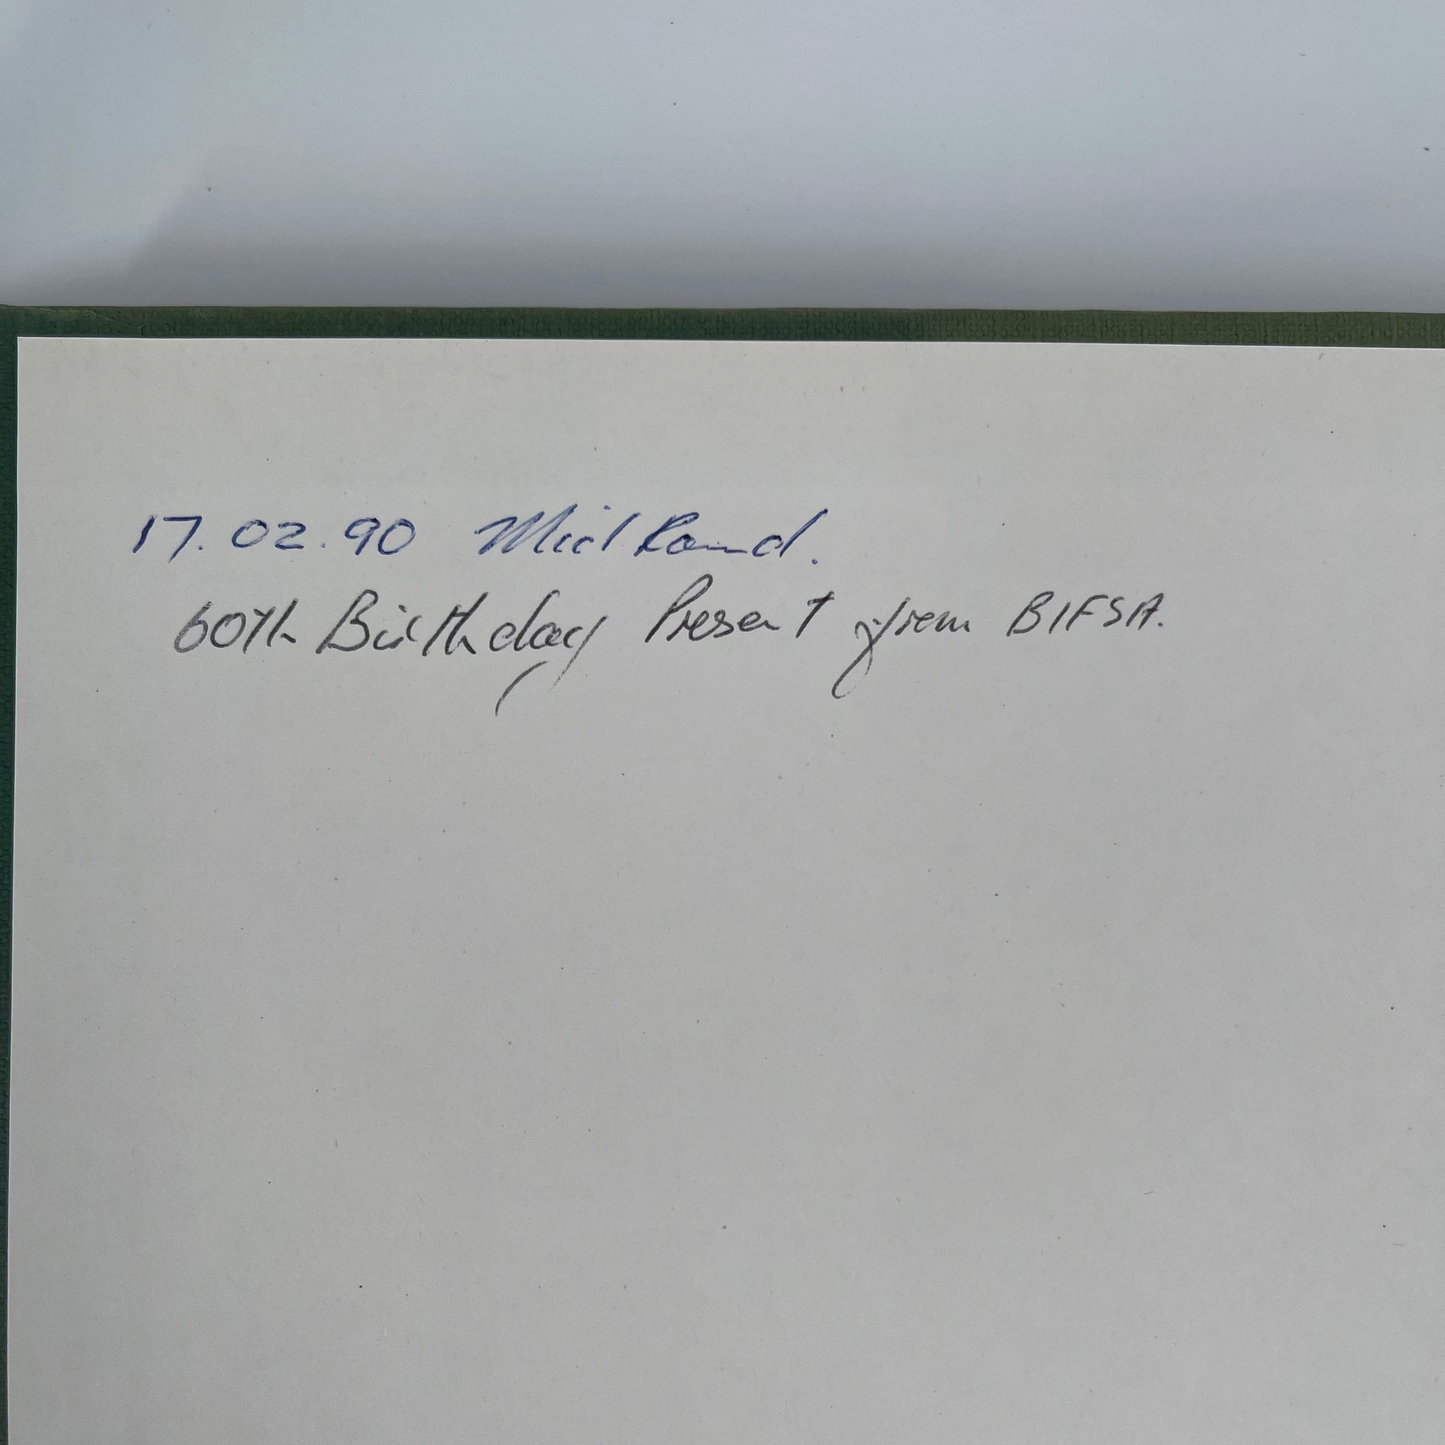 17.02.90 MidRand.
60th Birthday Present from BIFSA.